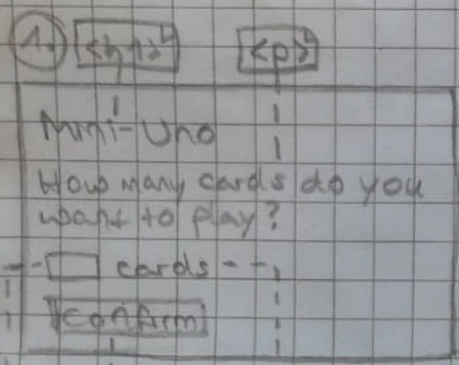 1. <h1> <p>
Mini-Uno
How many cards do you
want to play?
cards
confirm